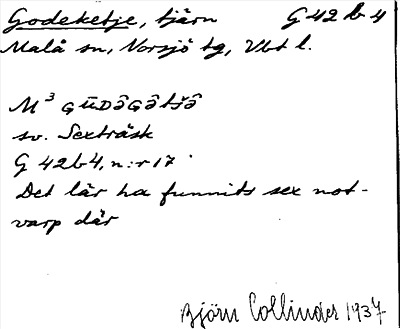 Godeketje, tjärn G 42 b 4
Malå sn, Norsjö tg, Vbt l.
M³ GŪDƏ̂GƏ̂tšƏ̂
sv. Sexträsk
G 42b4, n:r 17
Det lär ha funnits sex not-
varp där
Björn Collinder 1937